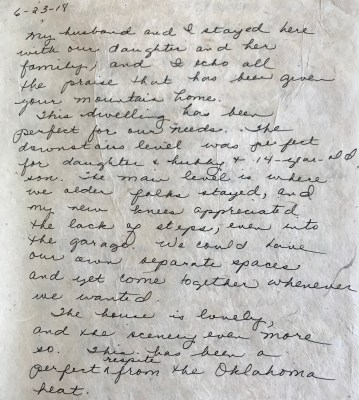 6-23-19
My husband and I stayed here
with our daughter and her
family, and I echo all
the praise that has been given
your mountain home.
This dwelling has been
perfect for our needs. The
downstairs level was perfect
for daughter & hubby & 14-year-old
son. The main level is where
we older folks stayed, and
my new knees appreciated
the lack of steps, even into
the garage. We could have
our own separate spaces
and yet come together whenever
we wanted.
The house is lovely,
and the scenery even more
so. This has been a
perfect ^respite from the Oklahoma
heat.